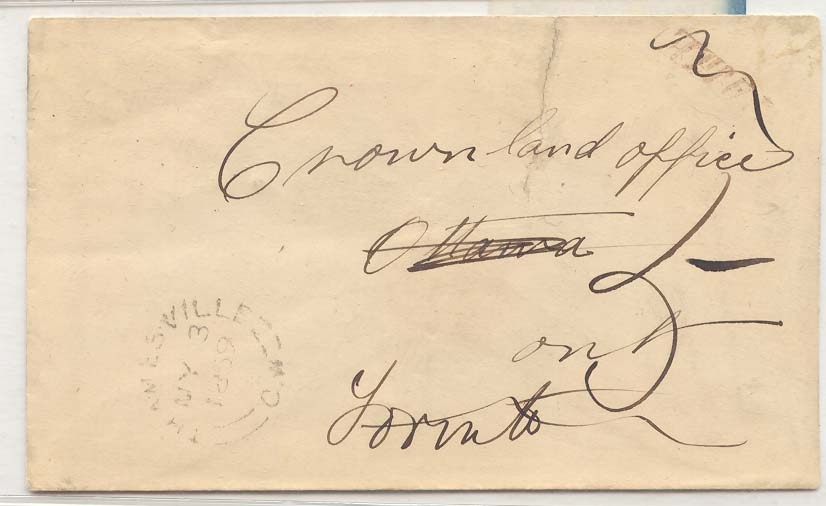 Crown land office
Ottawa
ont
Toronto
THAMESVILLE
MY 3